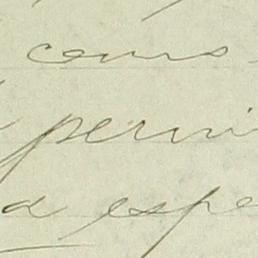 como
permi
a espe